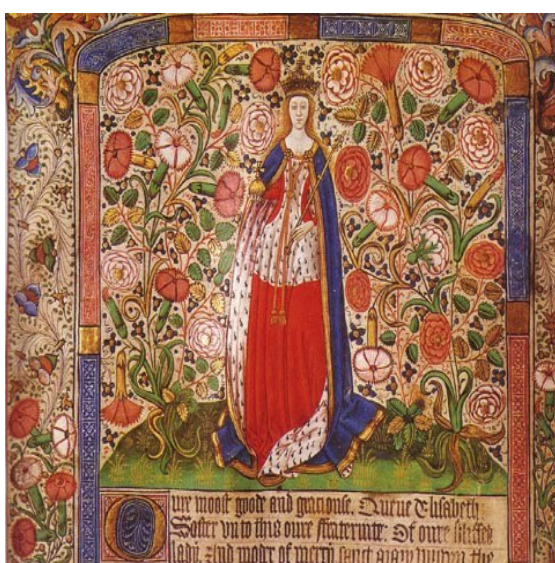 Oure moost goode and graciouse. Quene Elisabeth.
Soster vn to this oure fraternite: Of oure blissed
lady. And moder of mercy sanct mary virgyn the